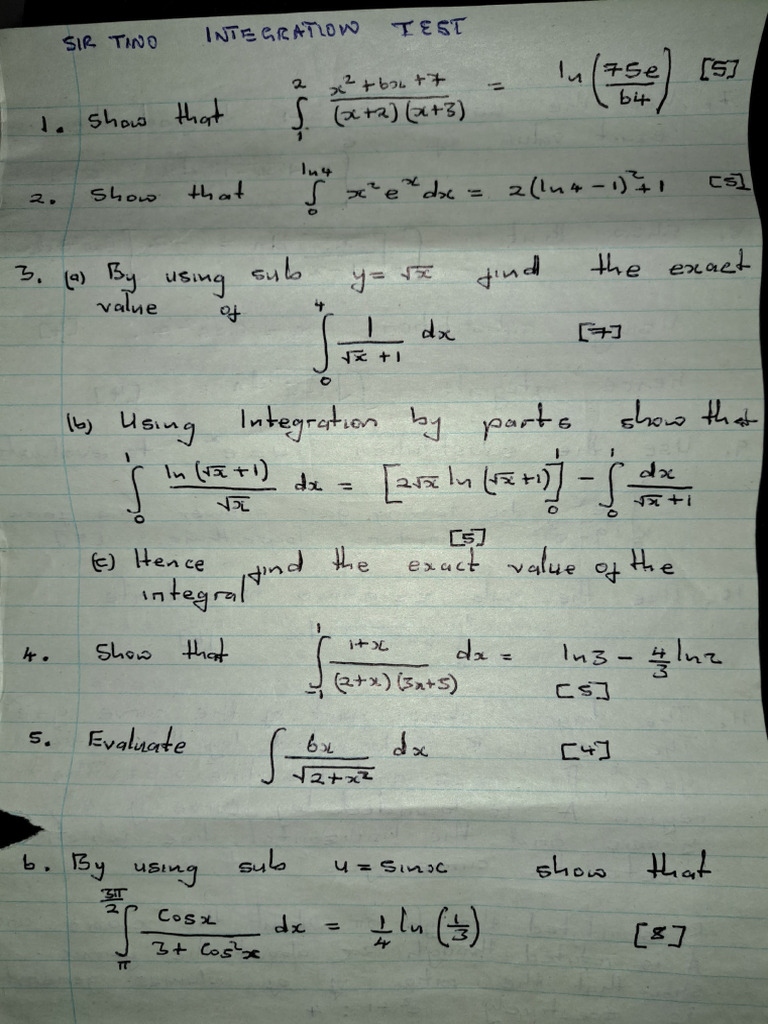 SIR TINO INTEGRATION TEST
1. Show that ∫₁² (x² + 6x + 7)/((x+2)(x+3)) = ln(75e/64) [5]
2. Show that ∫₀^(ln4) x²eˣ dx = 2(ln4 - 1)² + 1 [5]
3. (a) By using sub y = √x find the exact
value of
∫₀⁴ 1/(√x + 1) dx [7]
(b) Using Integration by parts show that
∫₀¹ ln(√x + 1)/√x dx = [2√x ln(√x + 1)]₀¹ - ∫₀¹ dx/(√x + 1)
[5]
(c) Hence find the exact value of the
integral
4. Show that ∫₋₁¹ (1+x)/((2+x)(3x+5)) dx = ln3 - 4/3 ln2
[5]
5. Evaluate ∫ 6x/√(2+x²) dx [4]
6. By using sub u = sinx show that
∫_π^(3π/2) cosx/(3 + cos²x) dx = 1/4 ln(1/3) [8]